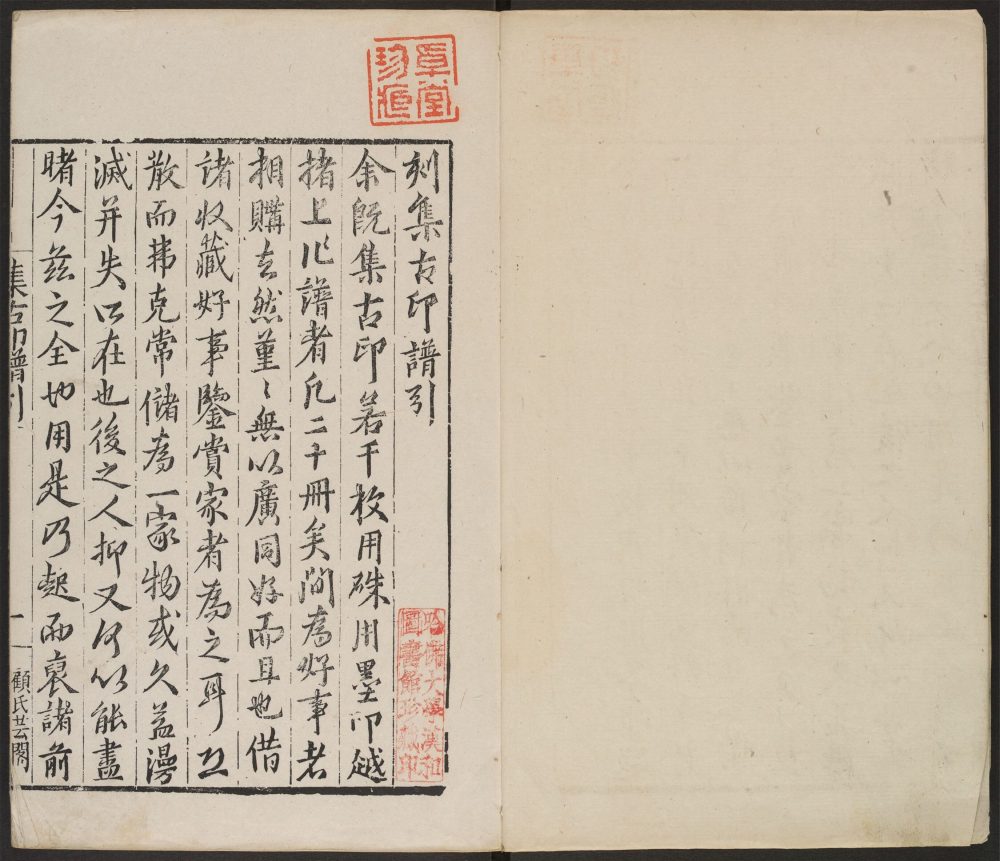 刻集古印譜引
余既集古印若干枚用硃用墨印越
楮上作譜者凡二十冊矣間為好事者
相購去然堇〻無以廣同好而且也借
諸收藏好事鑒賞家者為之耳工
散而弗克常儲為一家物或久益漫
滅并失所在也後之人抑又何以能盡
睹今茲之全也用是乃起而裒諸前
集古印譜引
一
顧氏芸閣
草堂
珍㽃
哈佛大學漢和
圖書館珍藏印